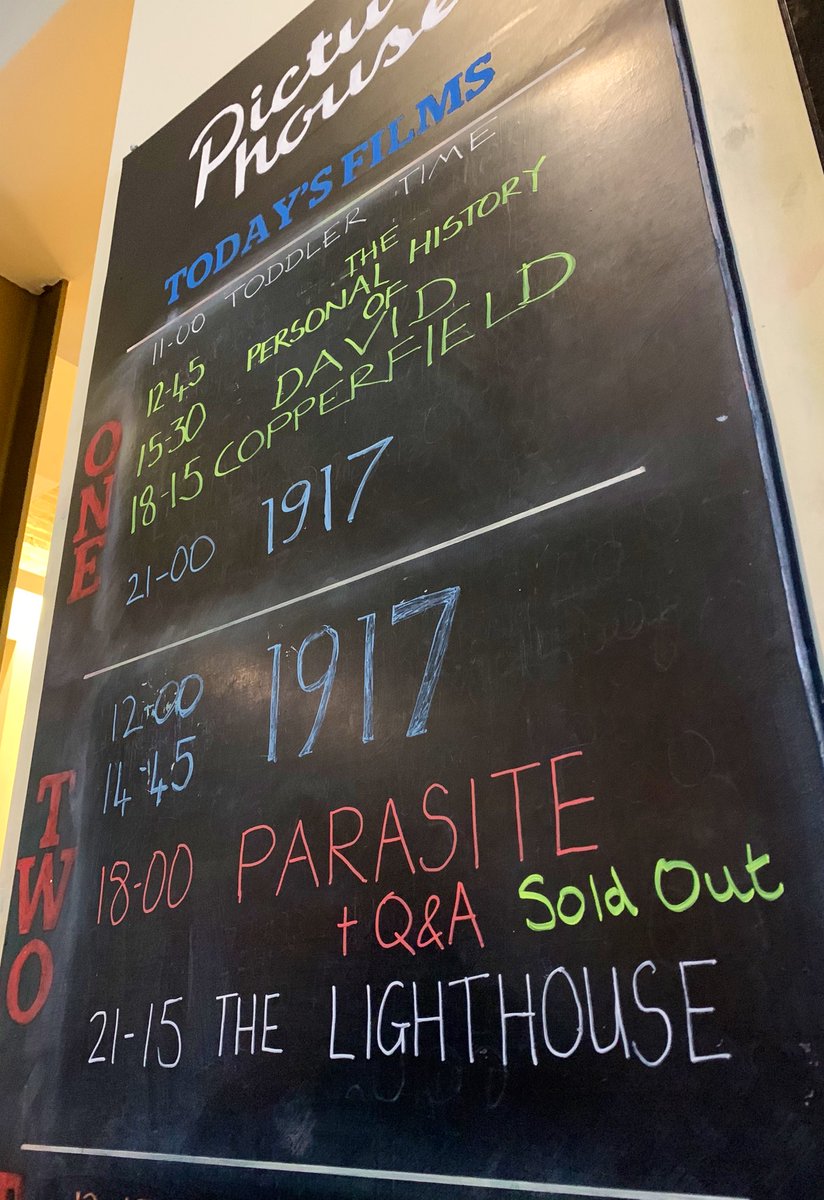 Picturehouse
TODAY'S FILMS
11-00 TODDLER TIME
ONE
12-45
15-30
18-15
THE
PERSONAL HISTORY
OF
DAVID
COPPERFIELD
21-00 1917
TWO
12-00
14-45
1917
18-00 PARASITE
+ Q&A Sold Out
21-15 THE LIGHTHOUSE